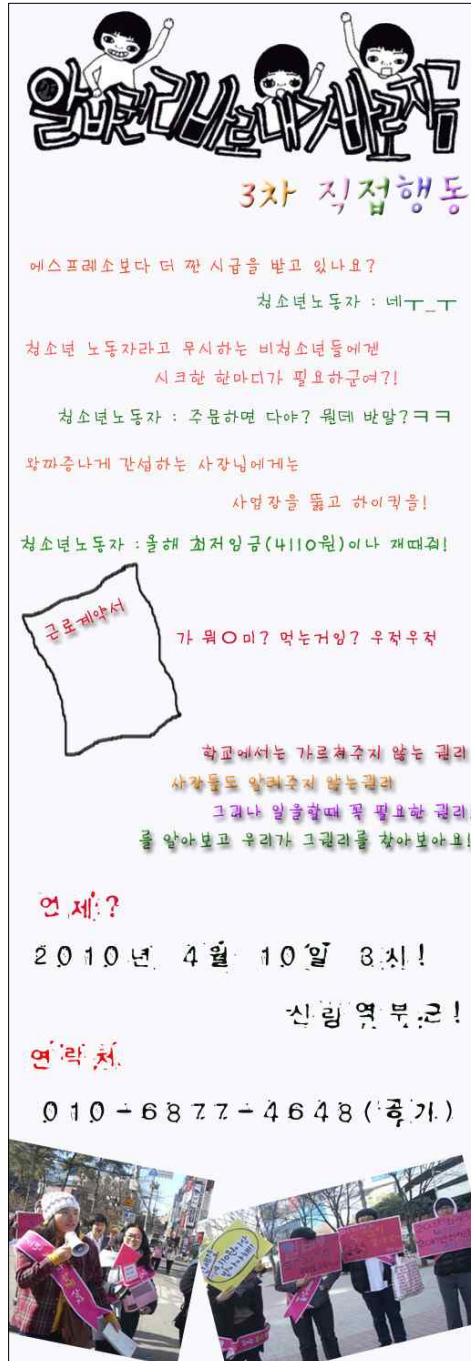 알바권리바로내기바로지금
3차 직접행동
에스프레소보다 더 짠 시급을 받고 있나요?
청소년노동자 : 네ㅜ_ㅜ
청소년 노동자라고 무시하는 비청소년들에겐
시크한 한마디가 필요하군여?!
청소년노동자 : 주문하면 다야? 뭔데 반말?ㅋㅋ
왕짜증나게 간섭하는 사장님에게는
사업장을 뚫고 하이킥을!
청소년노동자 :올해 최저임금(4110원)이나 재때줘!
근로계약서
가 뭐○미? 먹는거임? 우적우적
학교에서는 가르쳐주지 않는 권리
사장들도 알려주지 않는권리
그러나 일을할때 꼭 필요한 권리!
를 알아보고 우리가 그권리를 찾아보아요!
언제?
2010년 4월 10일 3시!
신림역부근!
연락처
010-6877-4648(공기)